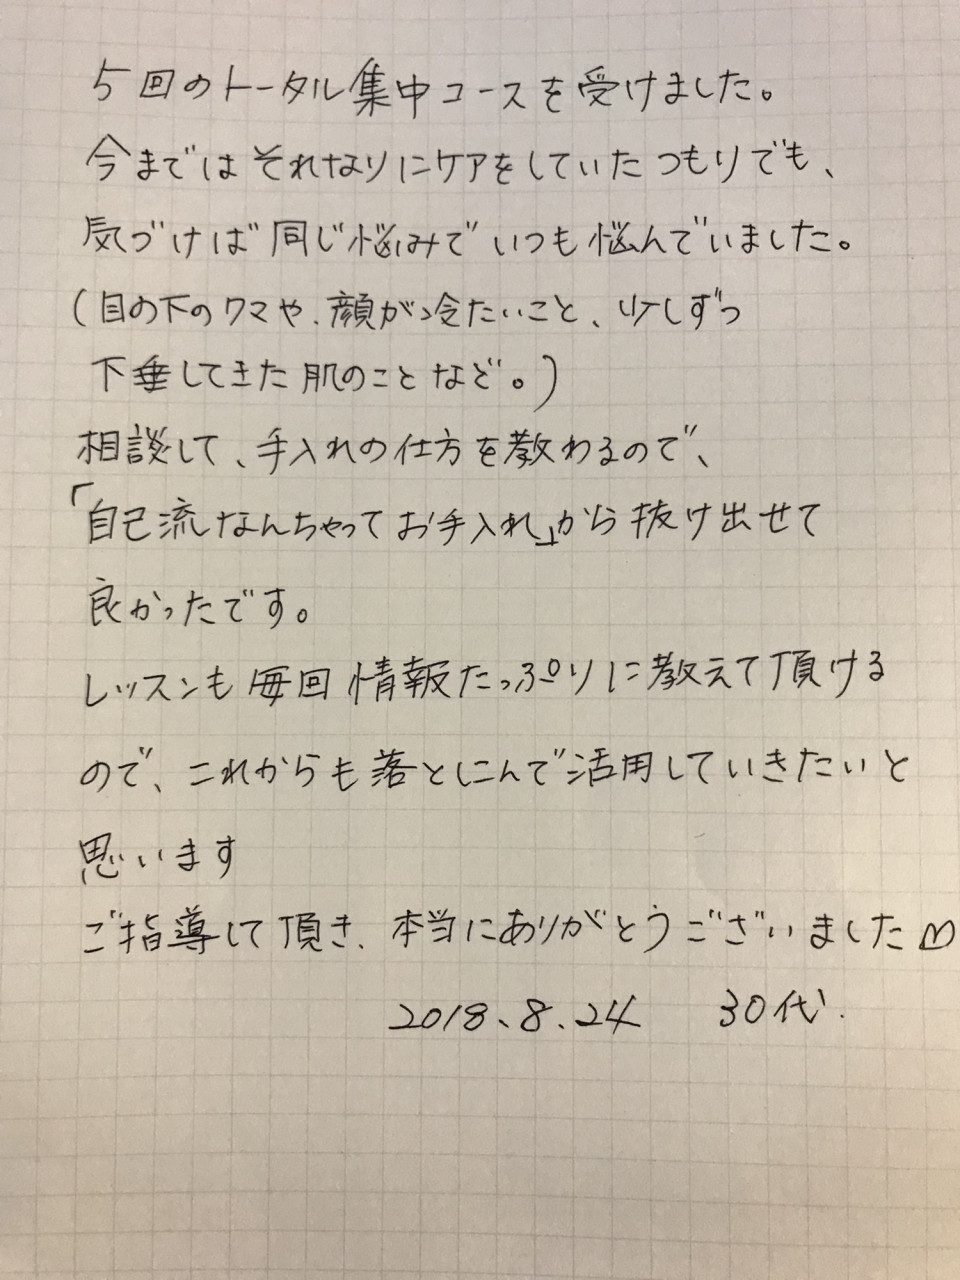 5回のトータル集中コースを受けました。
今まではそれなりにケアをしていたつもりでも、
気づけば同じ悩みでいつも悩んでいました。
(目の下のクマや、顔が冷たいこと、少しずつ
下垂してきた肌のことなど。)
相談して、手入れの仕方を教わるので、
「自己流なんちゃってお手入れ」から抜け出せて
良かったです。
レッスンも毎回情報たっぷりに教えて頂ける
ので、これからも落としこんで活用していきたいと
思います
ご指導して頂き、本当にありがとうございました♡
2018、8、24 30代.